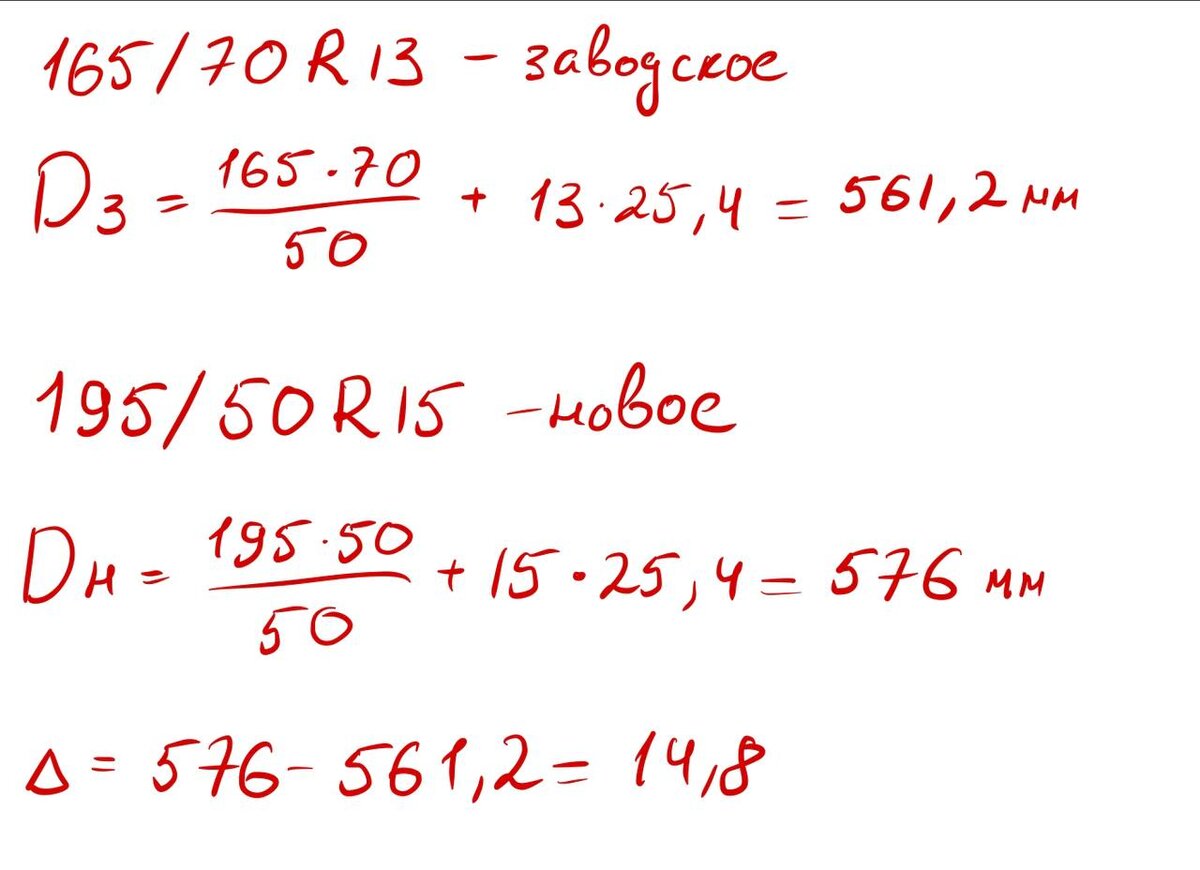 165/70 R 13 - заводское
Dз = 165·70/50 + 13·25,4 = 561,2 мм
195/50 R 15 - новое
Dн = 195·50/50 + 15·25,4 = 576 мм
Δ = 576 - 561,2 = 14,8